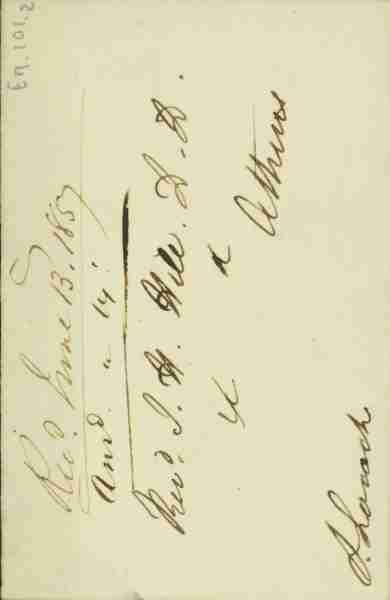 Εη. 101.2
Rec'd June 13. 1857
Ans'd. " 14.
Rev'd. J. H. Hill. D. D.
x x
Athens